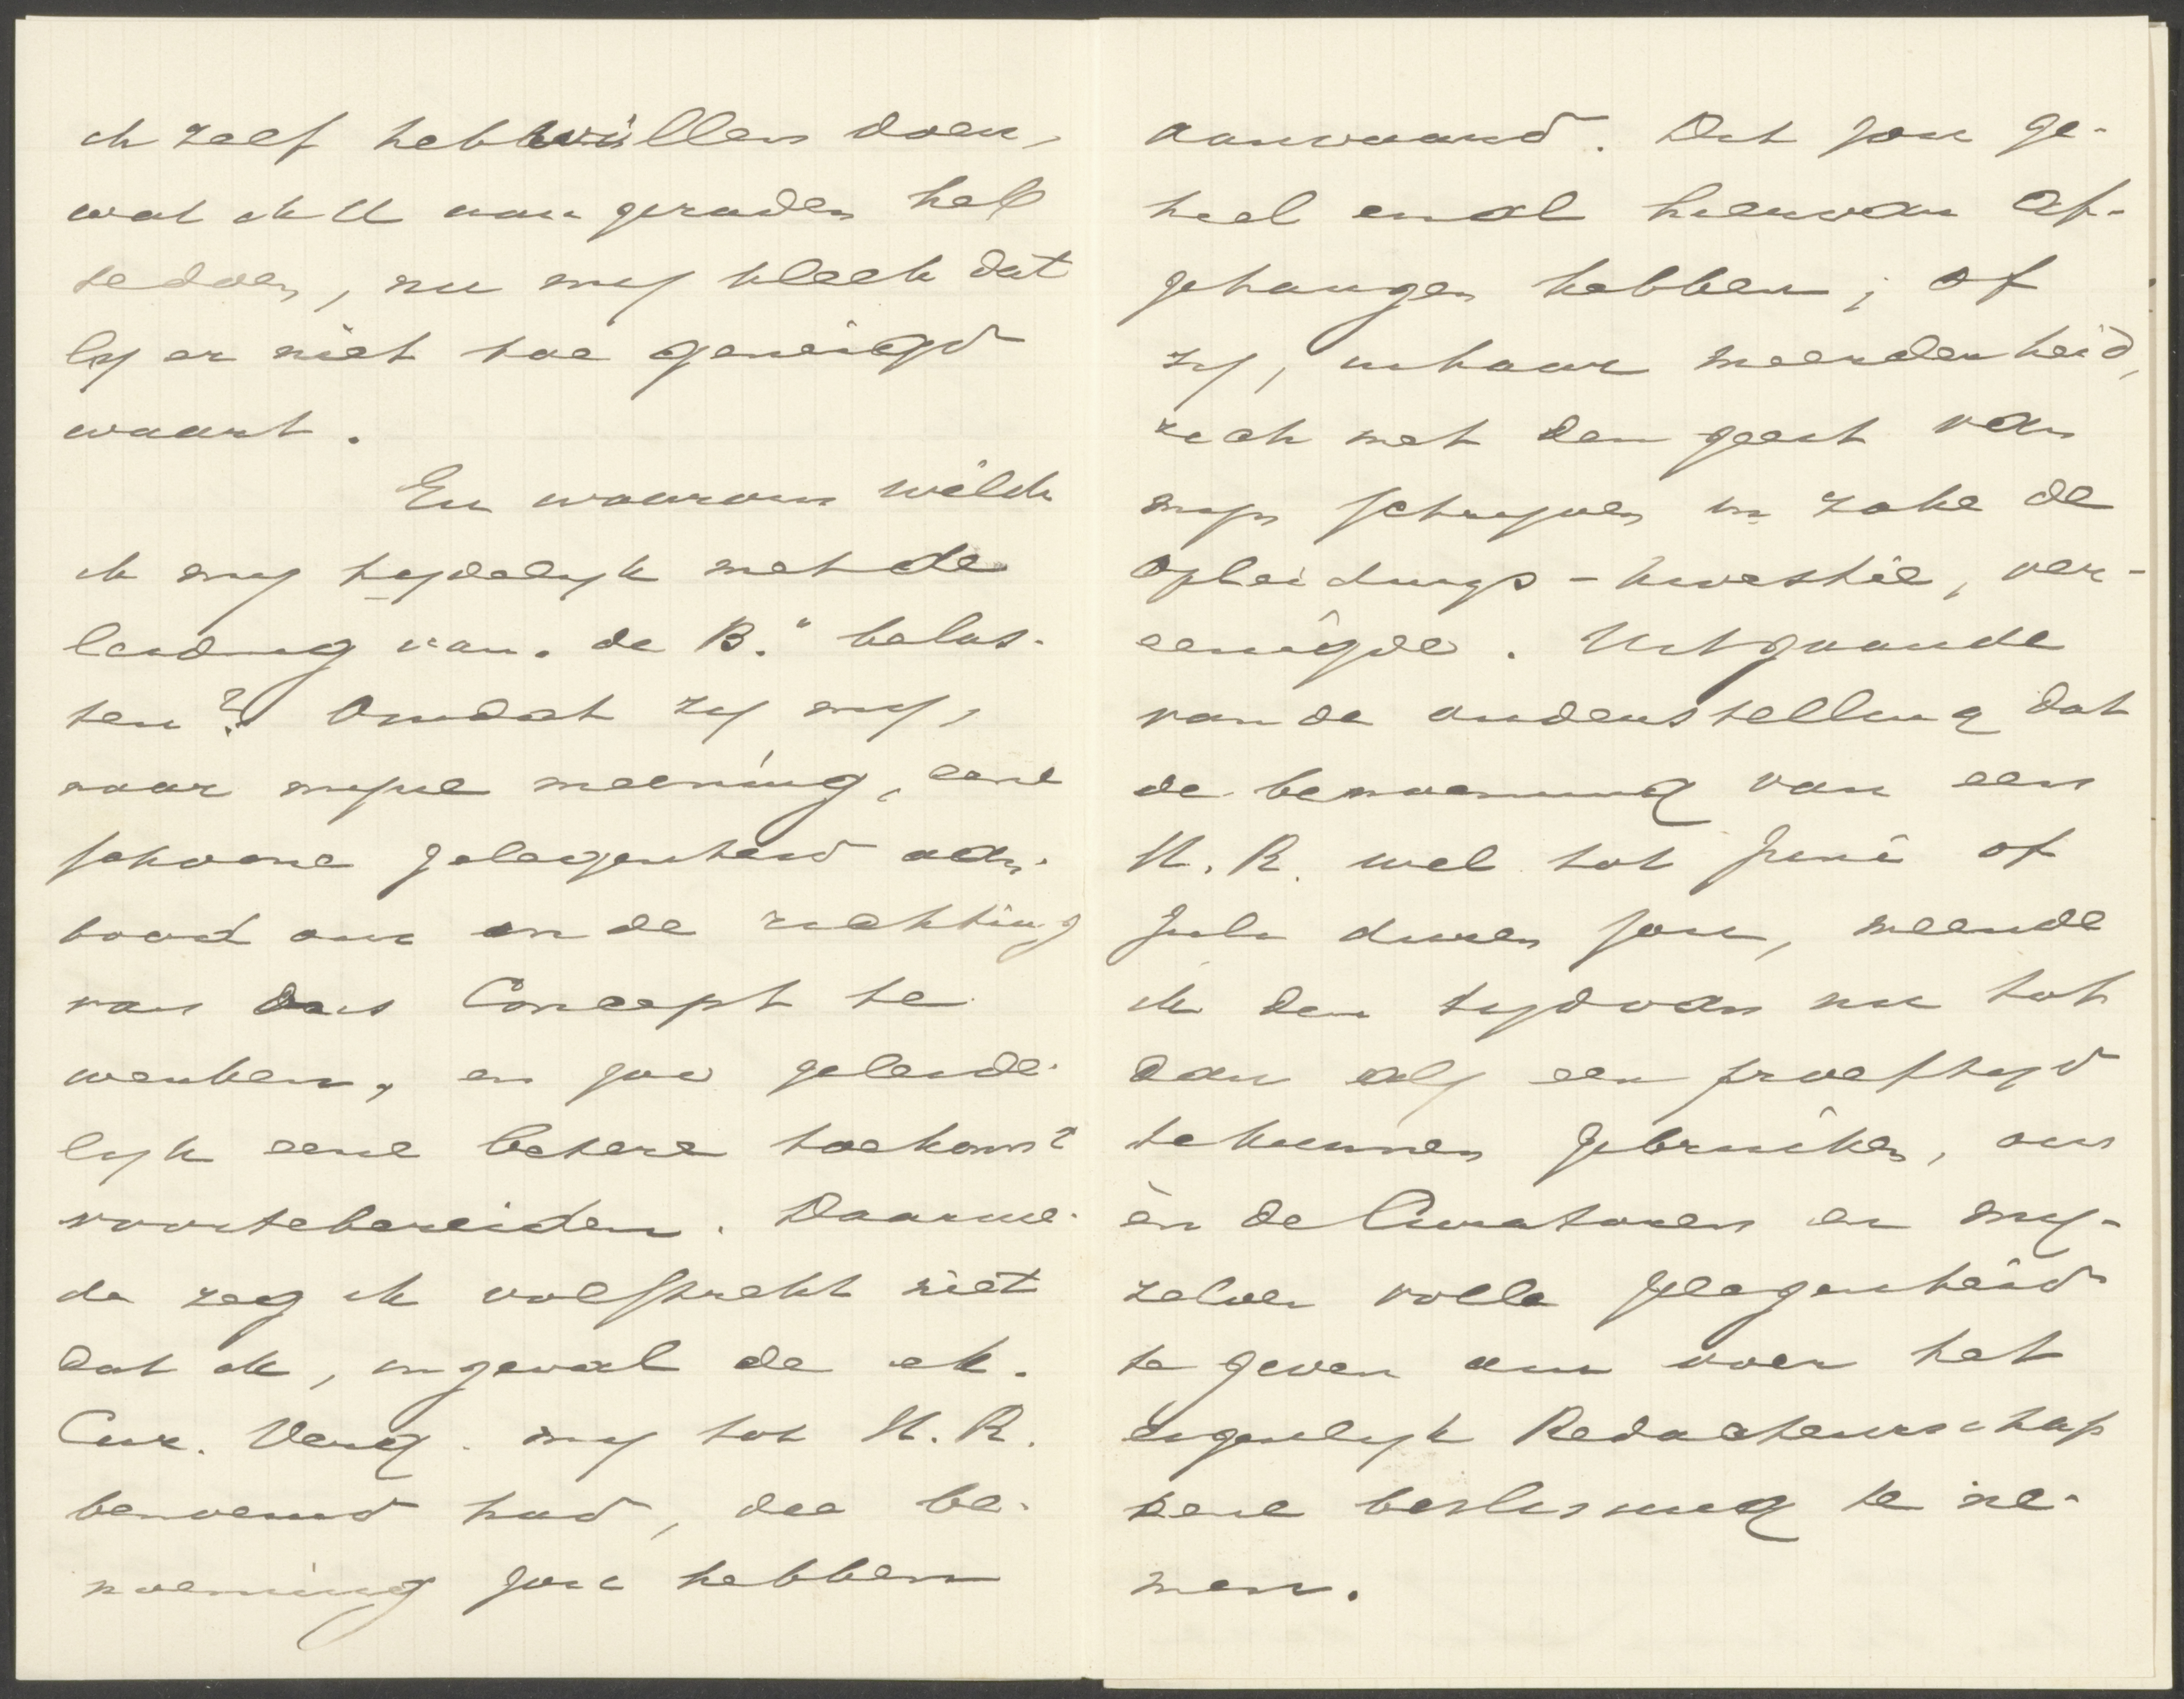 ik zelf heb willen doen,
wat ik U aangeraden heb
te doen, nu my bleek dat
Gy er niet toe geneigd
waart.
En waarom wilde
ik my tydelyk met de
leiding van „de B." belas-
ten? Omdat zy my,
naar myne meening, eene
schoone gelegenheid aan-
bood om in de richting
van ons Concept te
werken, en zoo geleide-
lyk eene betere toekomst
voortebereiden. Daarme-
de zeg ik volstrekt niet
dat ik, ingeval de
Cur. Verg. my tot H. R.
benoemd had, die be-
noeming zou hebben
aanvaard. Dit zou ge-
heel en al hiervan af-
gehangen hebben; of
zy, in haar meerderheid,
zich met den geest van
myn schryven in zake de
opleidings-kwestie, ver-
eenigde. Uitgaande
van de onderstelling dat
de benoeming van een
H. R. wel tot Juni of
Juli duren zou, meende
ik den tyd van nu tot
dan als een proeftyd
te kunnen gebruiken, om
èn de Curatoren en my-
zelven volle gelegenheid
te geven om over het
eigenlyk Redacteurschap
eene beslissing te ne-
men.